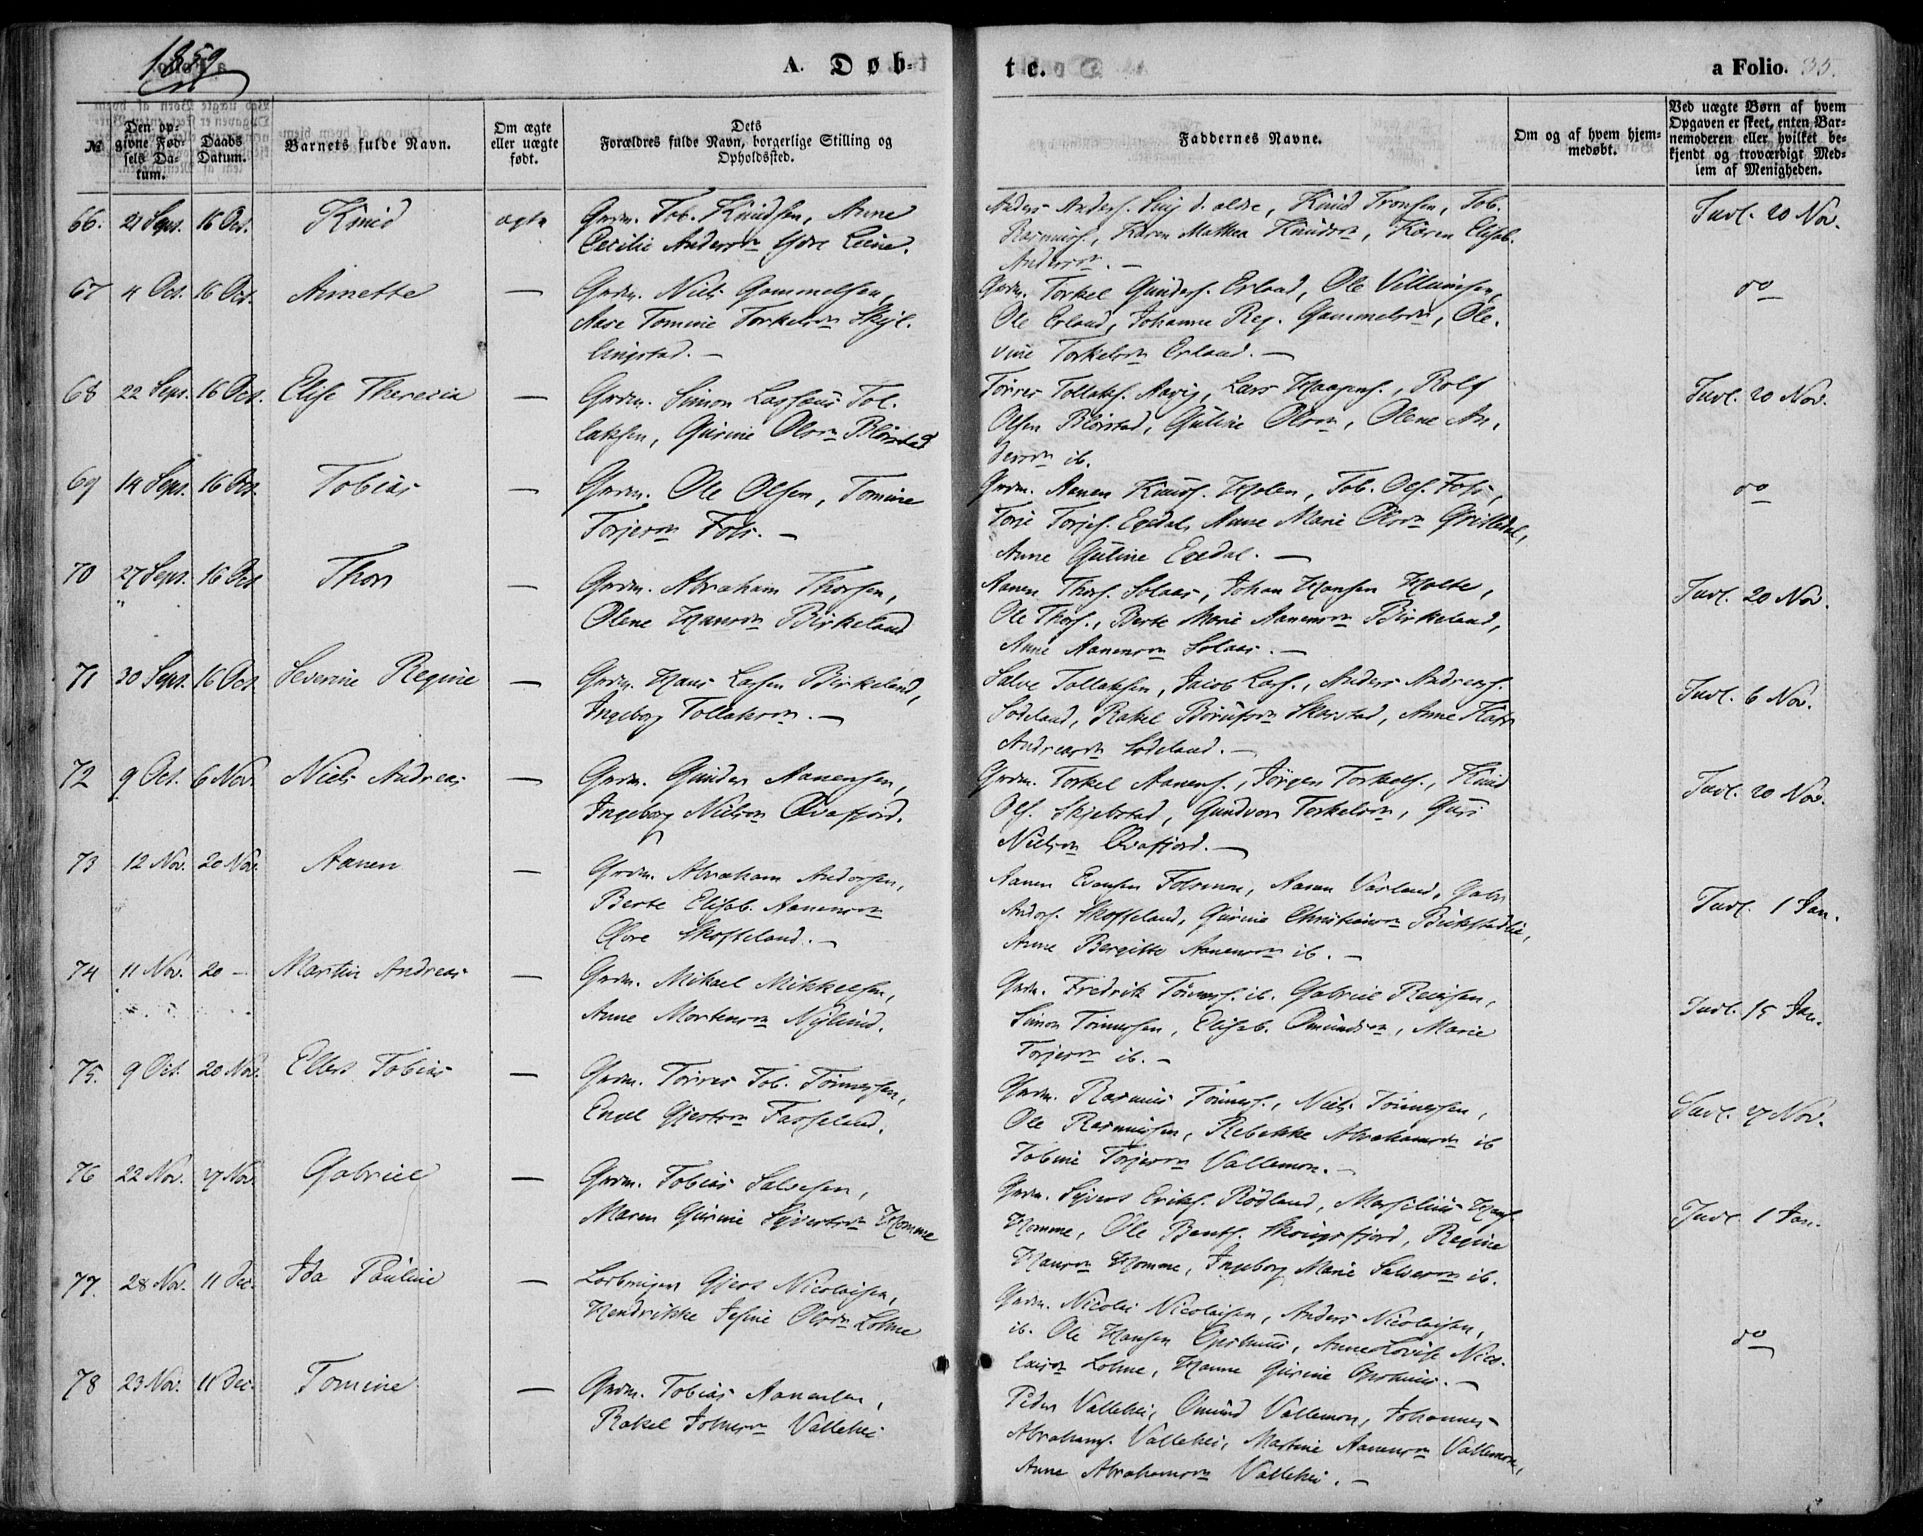 1859
A. Døb-
te.
a Folio. 35.
№
Den op-
givne Fød-
sels Da-
tum.
Daabs
Datum.
Barnets fulde Navn.
Om ægte
eller uægte
født.
Dets
Forældres fulde Navn, borgerlige Stilling og
Opholdssted.
Faddernes Navne.
Om og af hvem hjem-
medøbt.
Ved uægte Børn af hvem
Opgaven er skeet, enten Bar-
nemoderen eller hvilket be-
kjendt og troværdigt Med-
lem af Menigheden.
66. 21 Sept. 16 Oct. Knud ægte Grdm. Tob. Knudsen, Anne
Cecilie Andersdn
Anders Anders. d. ældre, Knud Tronsen, Tob.
Rasmus., Karen Mathea Knudsdn, Karen Elisab.
Andersdn. —
Indl. 20 Nov.
67 4 Oct. 16 Oct. Annette — Grdm. Niels Gammelsen,
Aase Tomine Torkelsdn Skjl.
lingstad. —
Grdm. Torkel Gunders. Erland, Ole Villumsen,
Ole Erland, Johanne Reg. Gammelsdn, Ole-
vine Torkelsdn Erland. —
do
68 22 Sept. 16 Oct. Elise Theresia — Grdm. Simon Tol-
laksen, Gurine Olsdn Blørstad
Tørres Tollaks. Aavig, Lars Haagens., Rolf
Olsen Blørstad, Guline Olsdn, Olene An-
dersdn ib.
Indl. 20 Nov.
69 14 Sept. 16 Oct. Tobias — Grdm. Ole Olsen, Tomine
Torjesdn Foss. —
Grdm. Aanen Knuds. Holen, Tob. Ols. Foss,
Torje Torjes. Egedal, Anne Marie Olsdn
Anne Guline Egedal. —
do
70 27 Sept. 16 Oct Thor — Grdm. Abraham Thorsen,
Olene Hansdn Birkeland
Aanen Thors. Solaas, Johan Hansen Holte,
Ole Thors., Berte Marie Aanensdn Birkeland,
Anne Aanensdn Solaas. —
Indl. 20 Nov.
71 30 Sept. 16 Oct Severine Regine — Grdm. Hans Larsen Birkeland,
Ingeborg Tollaksdn. —
Salve Tollaksen, Jacob Lars., Anders Andreas.
Sodeland, Rakel Skarstad, Anne
Andreasdn Sodeland. —
Indl. 6 Nov.
72 9 Oct. 6 Nov. Niels Andreas — Grdm. Gunder Aanensen,
Ingeborg Nielsdn Qvafjord.
Grdm. Torkel Aanens., Jørgen Torkels., Knud
Ols. Skjebstad, Gundvor Torkelsdn, Guri
Nielsdn Qvafjord. —
Indl. 20 Nov.
73 12 Nov. 20 Nov. Aanen — Grdm. Abraham Andersen,
Berte Elisab. Aanensdn
Øvre Skofteland. —
Aanen Evensen Aanen Vaarland, Gabr
Anders. Skofteland, Gurine Christiansdn
Anne Bergitte Aanensdn ib. —
Indl. 1 Jan.
74 11 Nov. 20 — Martin Andreas — Grdm. Mikael Mikkelsen,
Anne Mortensdn Nylund.
Grdm. Fredrik Tønnes. ib. Gabriel Reiersen,
Simon Tønnesen, Elisab. Omundsdn, Marie
Torjesdn ib. —
Indl. 15 Jan.
75. 9 Oct. 20 Nov. Ellert Tobias — Grdm. Tørres Tob. Tønnesen,
Engel Gjertsdn Fasseland.
Grdm. Rasmus Tønnes., Niels Tønnesen,
Ole Rasmussen, Rebekke Abrahamsdn ib
Tobine Torjesdn Vallemon. —
Indl. 27 Nov.
76 22 Nov. 27 Nov. Gabriel — Grdm. Tobias Salvesen,
Maren Gurine Syvertsdn Homme
Grdm. Syvert Eriks. Rødland, Marselius Hans.
Homme, Ole Bents. Regine
Hansdn Homme, Ingeborg Marie Salvesdn ib.
Indl. 1 Jan.
77. 28 Nov. 11 Dec. Ida Pauline — Gjert Nicolaisen,
Hendrikke Jesine Olsdn Lohne
Grdm. Nicolai Nicolaisen, Anders Nicolaisen,
ib. Ole Hansen Opshuus, Anne Lovise Nico-
laisdn Lohne, Hanne Gurine Opshuus. —
do
78 23 Nov. 11 Dec. Tomine — Grdm. Tobias Aanensen,
Rakel Johnsdn Vallehei
Peder Vallehei, Omund Vallemon, Johannes
Abrahams. Vallehei, Martine Aanensdn Vallemon,
Anne Abrahamsdn Vallehei. —